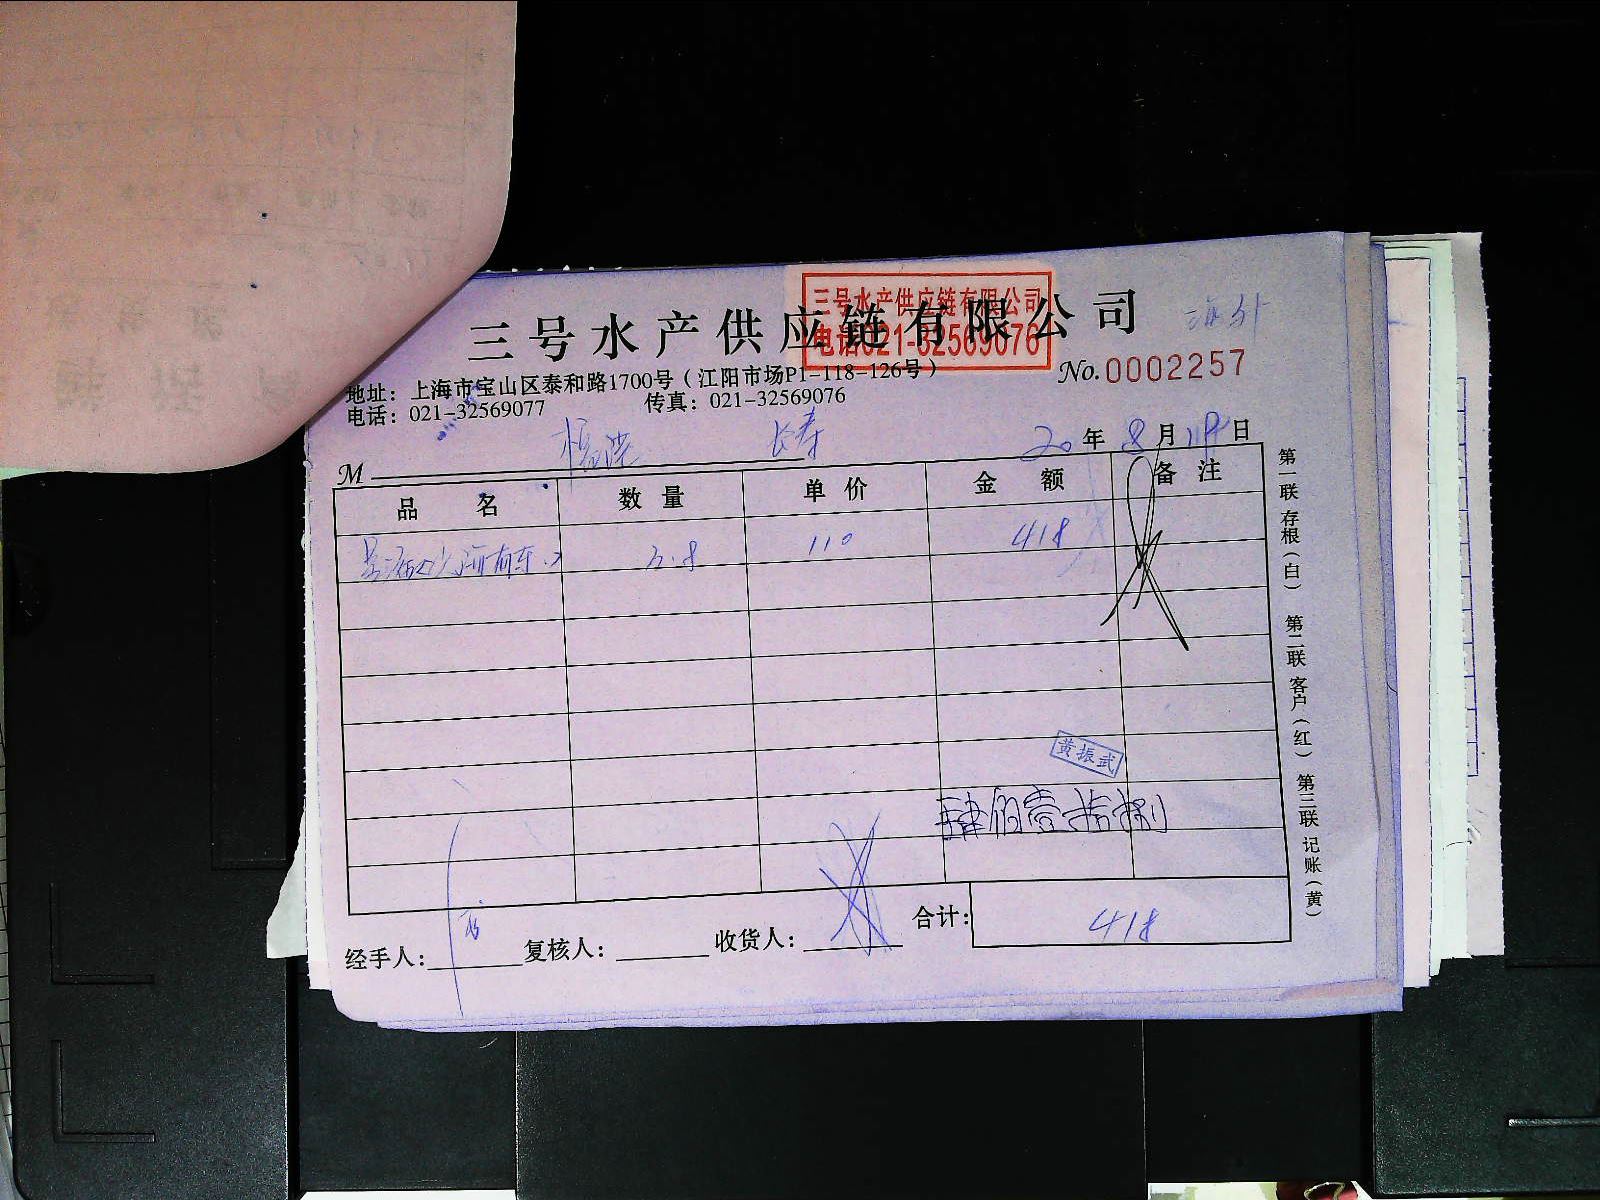 三号水产供应链有限公司
三号水产供应链有限公司
电话021-32569076
No.0002257
地址：上海市宝山区泰和路1700号（江阳市场P1-118-126号）
电话：021-32569077 传真：021-32569076
M 长寿 20年8月19日
品名 数量 单价 金额 备注
3.8 110 418
黄振武
肆佰壹拾捌
合计：418
经手人： 复核人： 收货人：
第一联存根（白） 第二联客户（红） 第三联记账（黄）